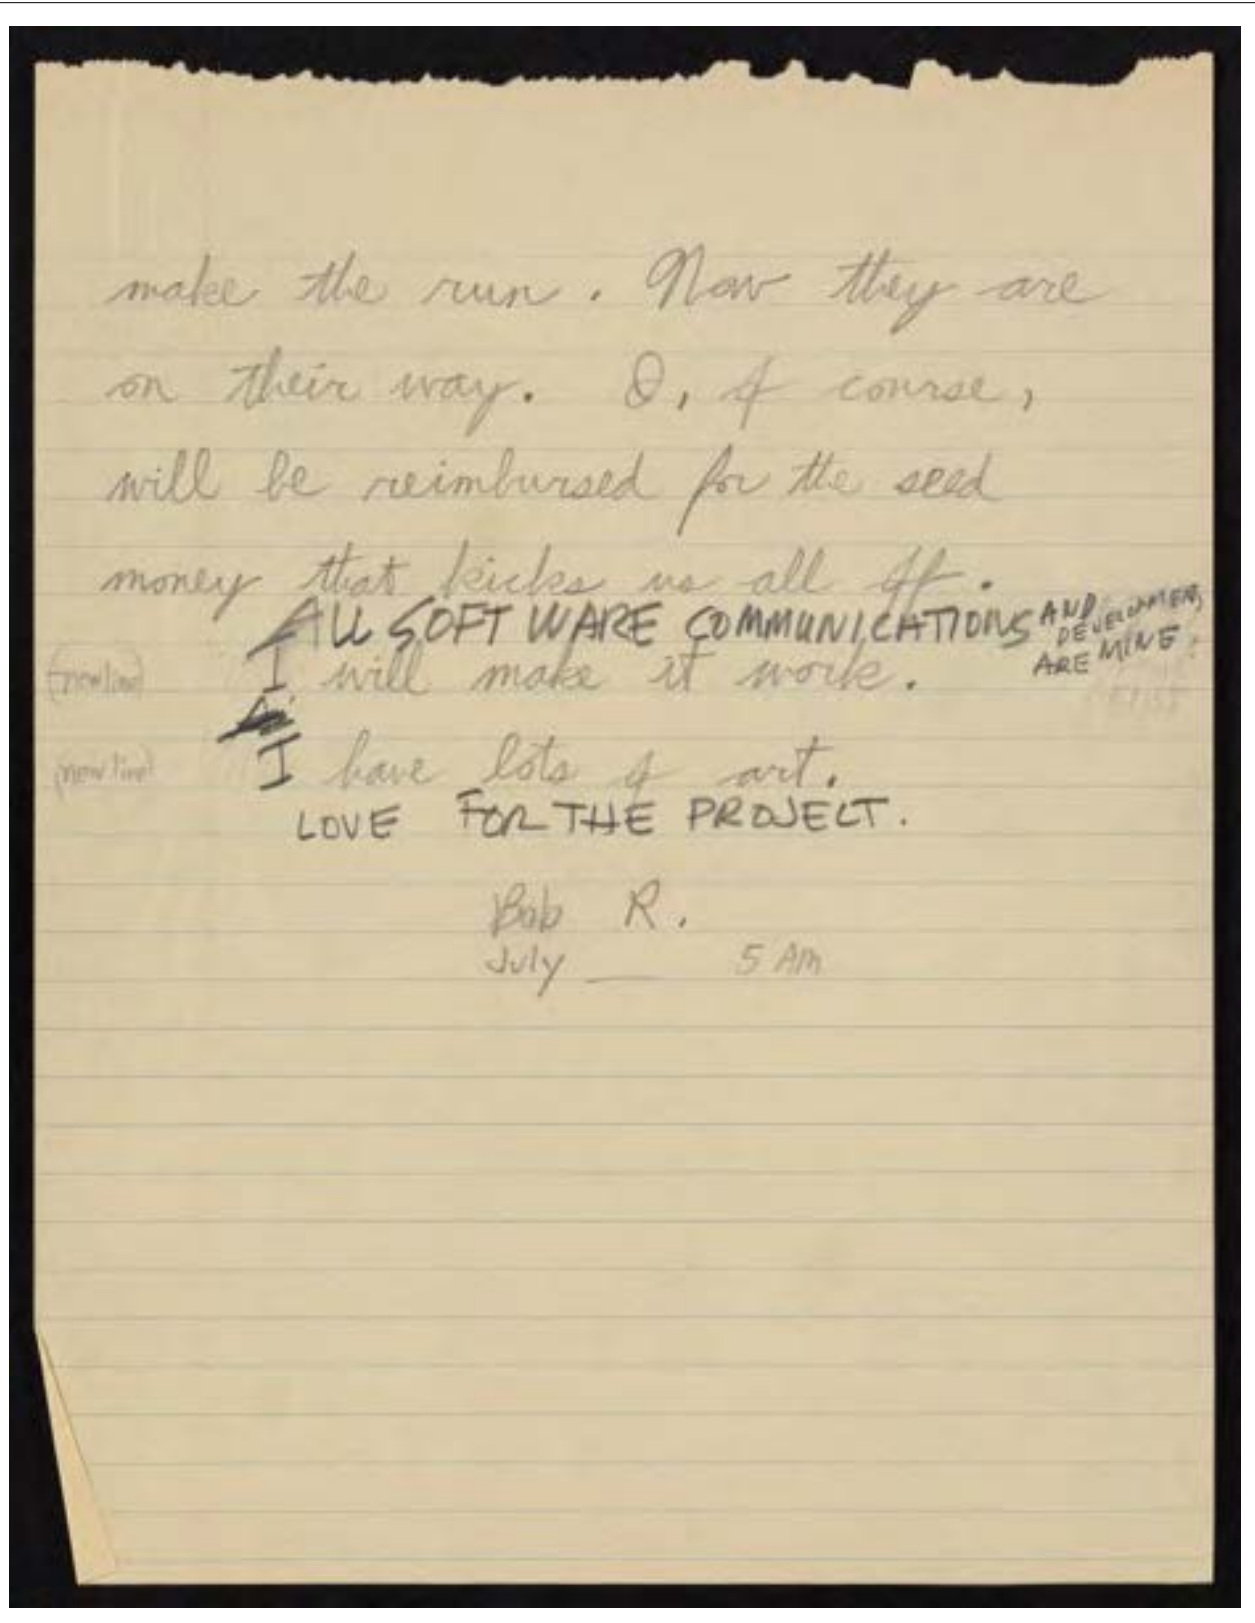 make the run. Now they are
on their way. O, of course,
will be reimbursed for the seed
money that kicks us all off.
ALL SOFT WARE COMMUNICATIONS AND
ARE MINE.
(newline) I will make it work.
(new line) I have lots of art.
LOVE FOR THE PROJECT.
Bob R.
July __ 5 AM